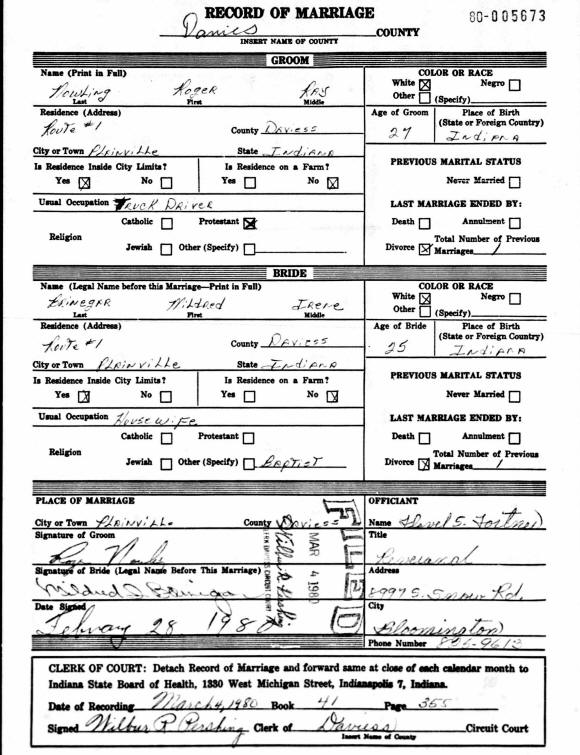 RECORD OF MARRIAGE
80-005673
Daviess COUNTY
INSERT NAME OF COUNTY
GROOM
Name (Print in Full)
Roger Ray
Last First Middle
COLOR OR RACE
White ☒ Negro ☐
Other ☐ (Specify)
Residence (Address)
Route #1 County Daviess
Age of Groom
27
Place of Birth
(State or Foreign Country)
Indiana
City or Town Plainville State Indiana
Is Residence Inside City Limits?
Yes ☒ No ☐
Is Residence on a Farm?
Yes ☐ No ☒
PREVIOUS MARITAL STATUS
Never Married ☐
Usual Occupation Truck Driver
LAST MARRIAGE ENDED BY:
Religion
Catholic ☐ Protestant ☒
Jewish ☐ Other (Specify) ☐
Death ☐ Annulment ☐
Divorce ☒ Total Number of Previous
Marriages 1
BRIDE
Name (Legal Name before this Marriage—Print in Full)
Brinegar Mildred Irene
Last First Middle
COLOR OR RACE
White ☒ Negro ☐
Other ☐ (Specify)
Residence (Address)
Route #1 County Daviess
Age of Bride
25
Place of Birth
(State or Foreign Country)
Indiana
City or Town Plainville State Indiana
Is Residence Inside City Limits?
Yes ☒ No ☐
Is Residence on a Farm?
Yes ☐ No ☒
PREVIOUS MARITAL STATUS
Never Married ☐
Usual Occupation Housewife
LAST MARRIAGE ENDED BY:
Religion
Catholic ☐ Protestant ☐
Jewish ☐ Other (Specify) ☐ Baptist
Death ☐ Annulment ☐
Divorce ☒ Total Number of Previous
Marriages 1
PLACE OF MARRIAGE
City or Town Plainville County Daviess
OFFICIANT
Name S.
Signature of Groom
Title
Reverend
Signature of Bride (Legal Name Before This Marriage)
Mildred I. Brinegar
Address
8997 S. Rd.
Date Signed
February 28 1980
City
Bloomington
Phone Number
FILED
MAR 4 1980
Wilbur R. Pershing
CLERK DAVIESS CIRCUIT COURT
CLERK OF COURT: Detach Record of Marriage and forward same at close of each calendar month to
Indiana State Board of Health, 1330 West Michigan Street, Indianapolis 7, Indiana.
Date of Recording March 4, 1980 Book 41 Page 355
Signed Wilbur R Pershing Clerk of Daviess Circuit Court
Insert Name of County